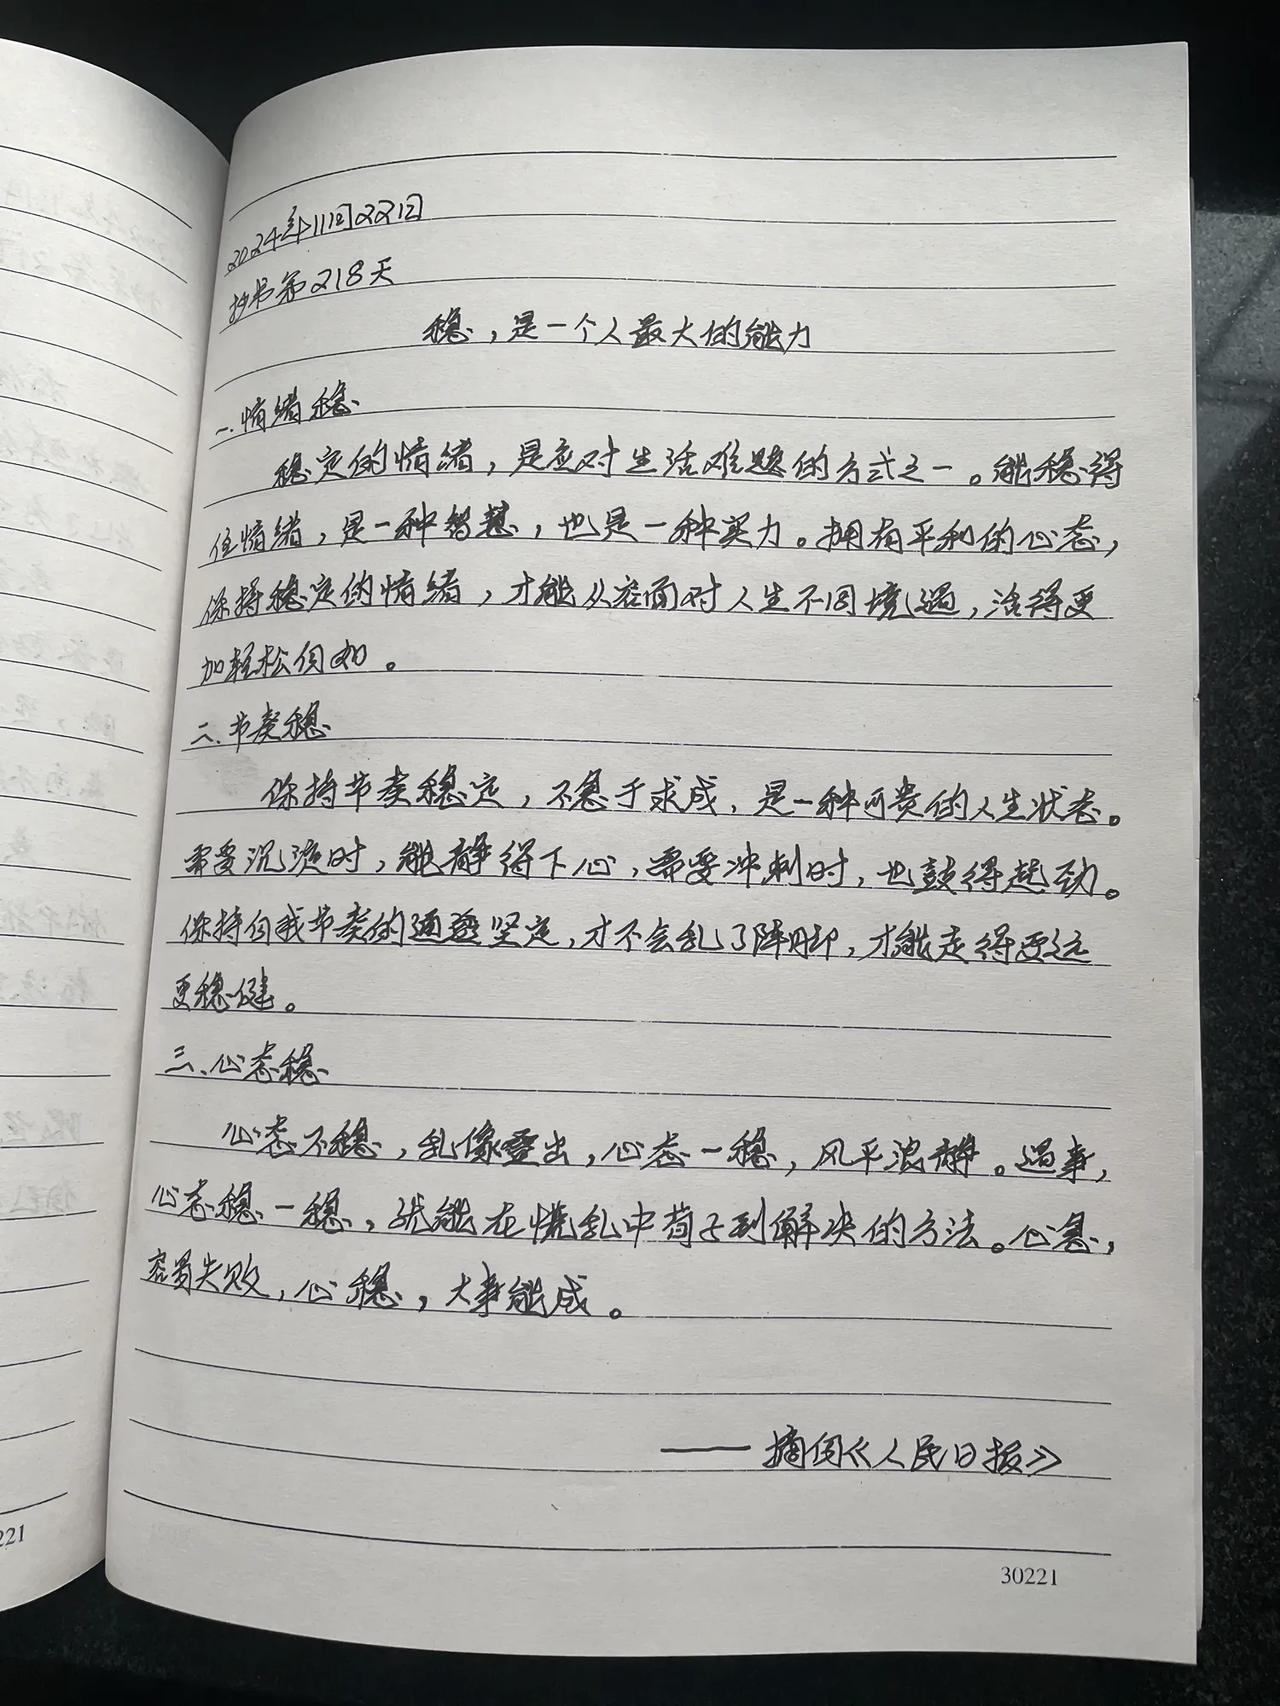 2024年11月22日
抄书第218天
稳，是一个人最大的能力
一.情绪稳
稳定的情绪，是应对生活难题的方式之一。能稳得
住情绪，是一种智慧，也是一种实力。拥有平和的心态，
保持稳定的情绪，才能从容面对人生不同境遇，活得更
加轻松自如。
二.节奏稳
保持节奏稳定，不急于求成，是一种可贵的人生状态。
需要沉淀时，能静得下心，需要冲刺时，也鼓得起劲。
保持自我节奏的通透坚定，才不会乱了阵脚，才能走得更远
更稳健。
三.心态稳
心态不稳，乱象叠出，心态一稳，风平浪静。遇事，
心态稳一稳，就能在慌乱中荀子到解决的方法。心急，
容易失败，心稳，大事能成。
——摘自《人民日报》
30221
221